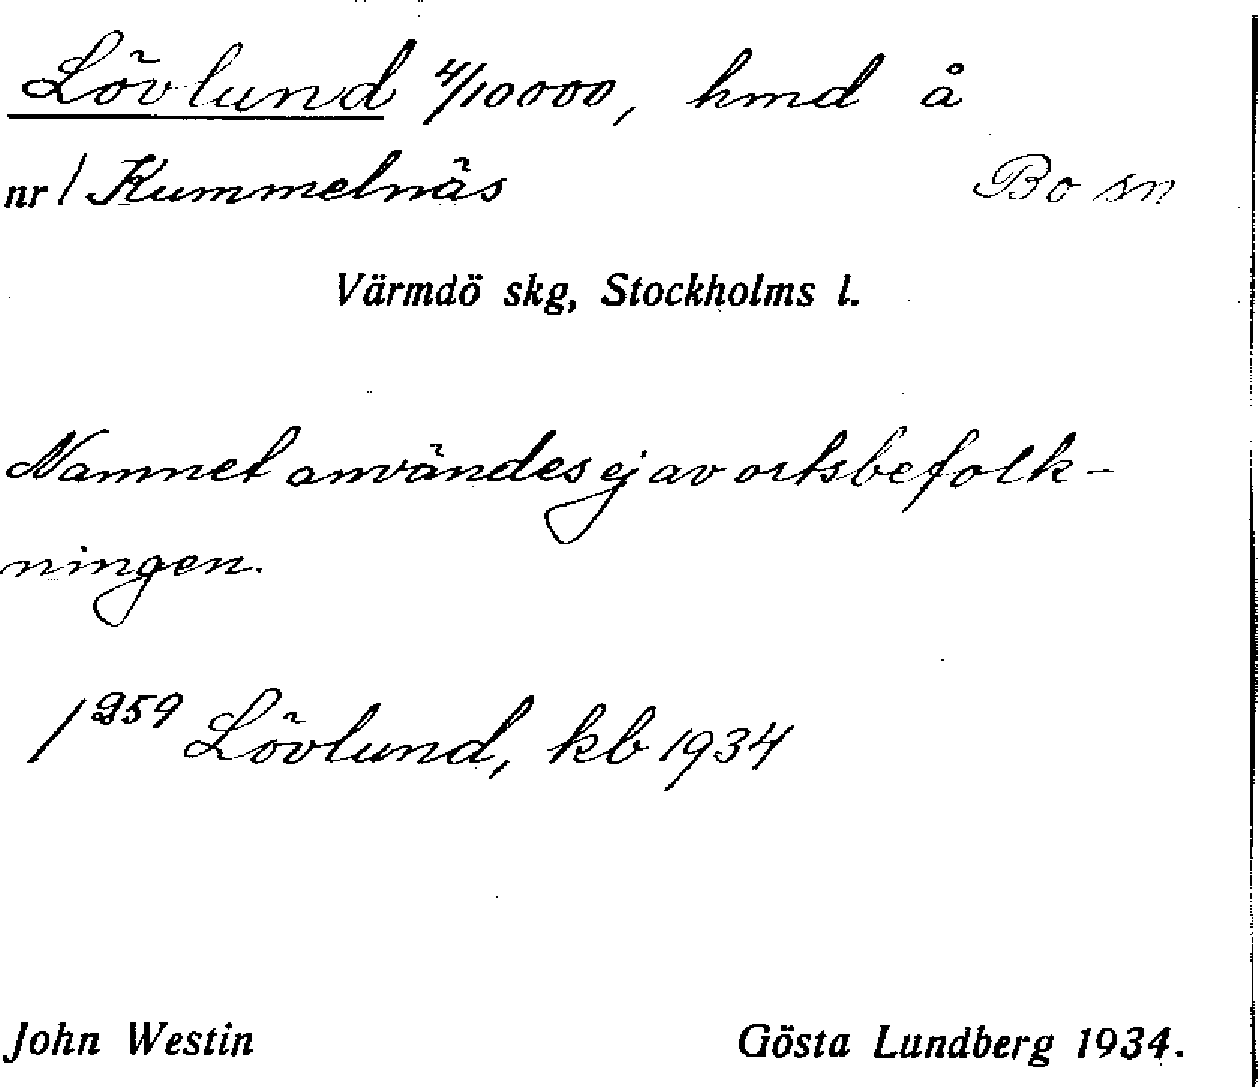 Lövlund 4/10000, hmd å
nr 1 Kummelnäs Bo sn
Värmdö skg, Stockholms l.
Namnet användes ej av ortsbefolk-
ningen.
1259 Lövlund, kb 1934
John Westin Gösta Lundberg 1934.